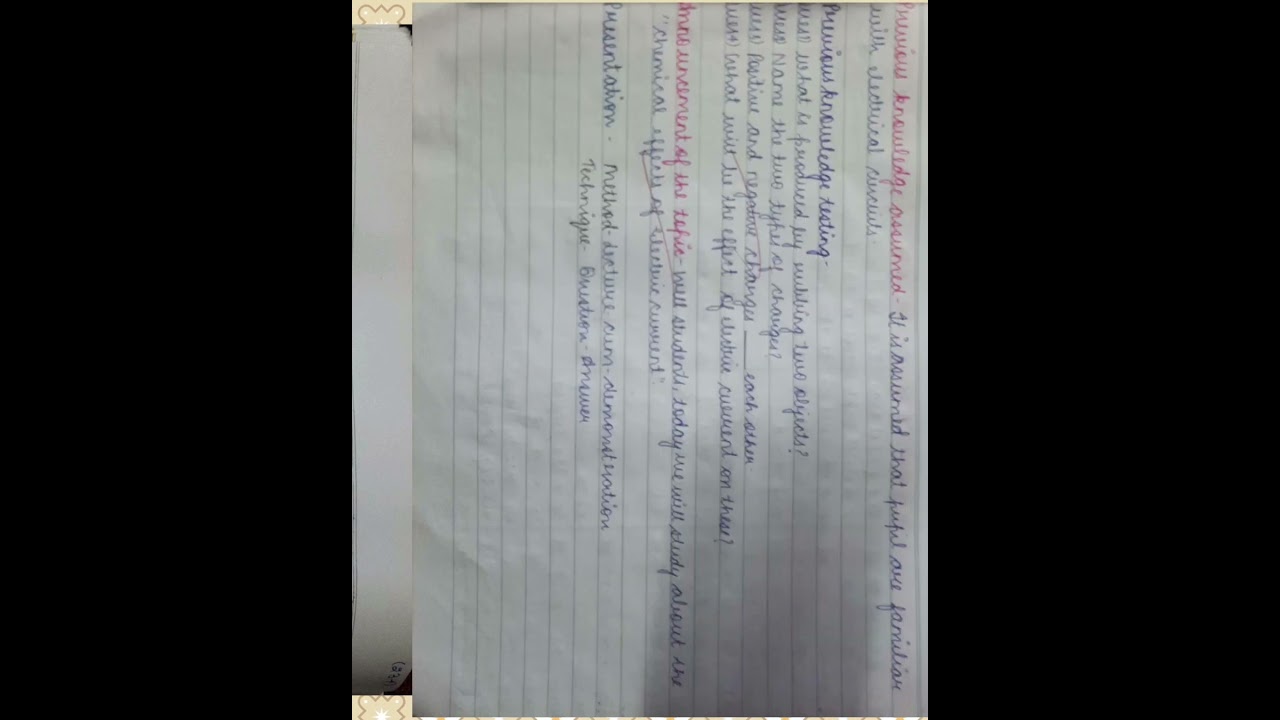 Previous knowledge assumed- It is assumed that pupil are familiar
with electrical circuits.
Previous knowledge testing-
Ques1) What is produced by rubbing two objects?
Ques2) Name the two types of charges?
Ques3) Positive and negative charges ____ each other.
Ques4) What will be the effect of electric current on these?
Announcement of the topic- Well students, today we will study about the
"chemical effects of electric current".
Presentation- Method- Lecture cum-demonsteration
Technique- Question-Answer